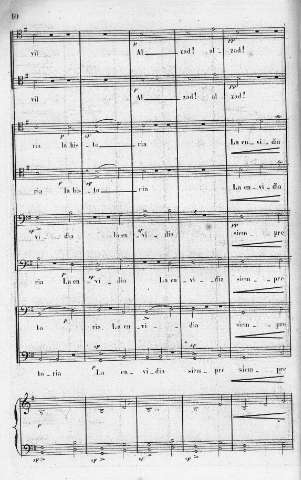 10
p pp
vil Al zad! al zad!
p pp
vil Al zad! al zad!
p sf
ria la his to ria La en vi dia
p sf
ria la his to ria La en vi dia
sf sf pp
vi dia la en vi dia siem pre
p sf
ria La en vi dia La en vi dia siem pre
p
to ria La en vi dia siem pre
sf
to ria La en vi dia siem pre siem pre
p
sf sf sf sf